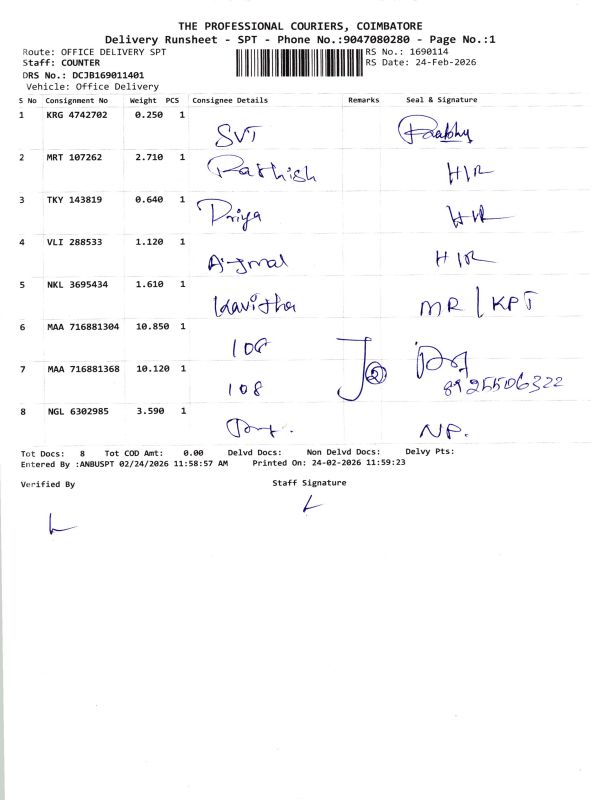 THE PROFESSIONAL COURIERS, COIMBATORE
Delivery Runsheet - SPT - Phone No.:9047080280 - Page No.:1
Route: OFFICE DELIVERY SPT RS No.: 1690114
Staff: COUNTER RS Date: 24-Feb-2026
DRS No.: DCJB169011401
Vehicle: Office Delivery
S No Consignment No Weight PCS Consignee Details Remarks Seal & Signature
1 KRG 4742702 0.250 1
SVT Prabhu
2 MRT 107262 2.710 1
Rathish
3 TKY 143819 0.640 1
Priya
4 VLI 288533 1.120 1
Ajmal
5 NKL 3695434 1.610 1
Kavitha MR/KPT
6 MAA 716881304 10.850 1
108
7 MAA 716881368 10.120 1
108 8925506322
8 NGL 6302985 3.590 1
NP.
Tot Docs: 8 Tot COD Amt: 0.00 Delvd Docs: Non Delvd Docs: Delvy Pts:
Entered By :ANBUSPT 02/24/2026 11:58:57 AM Printed On: 24-02-2026 11:59:23
Verified By Staff Signature